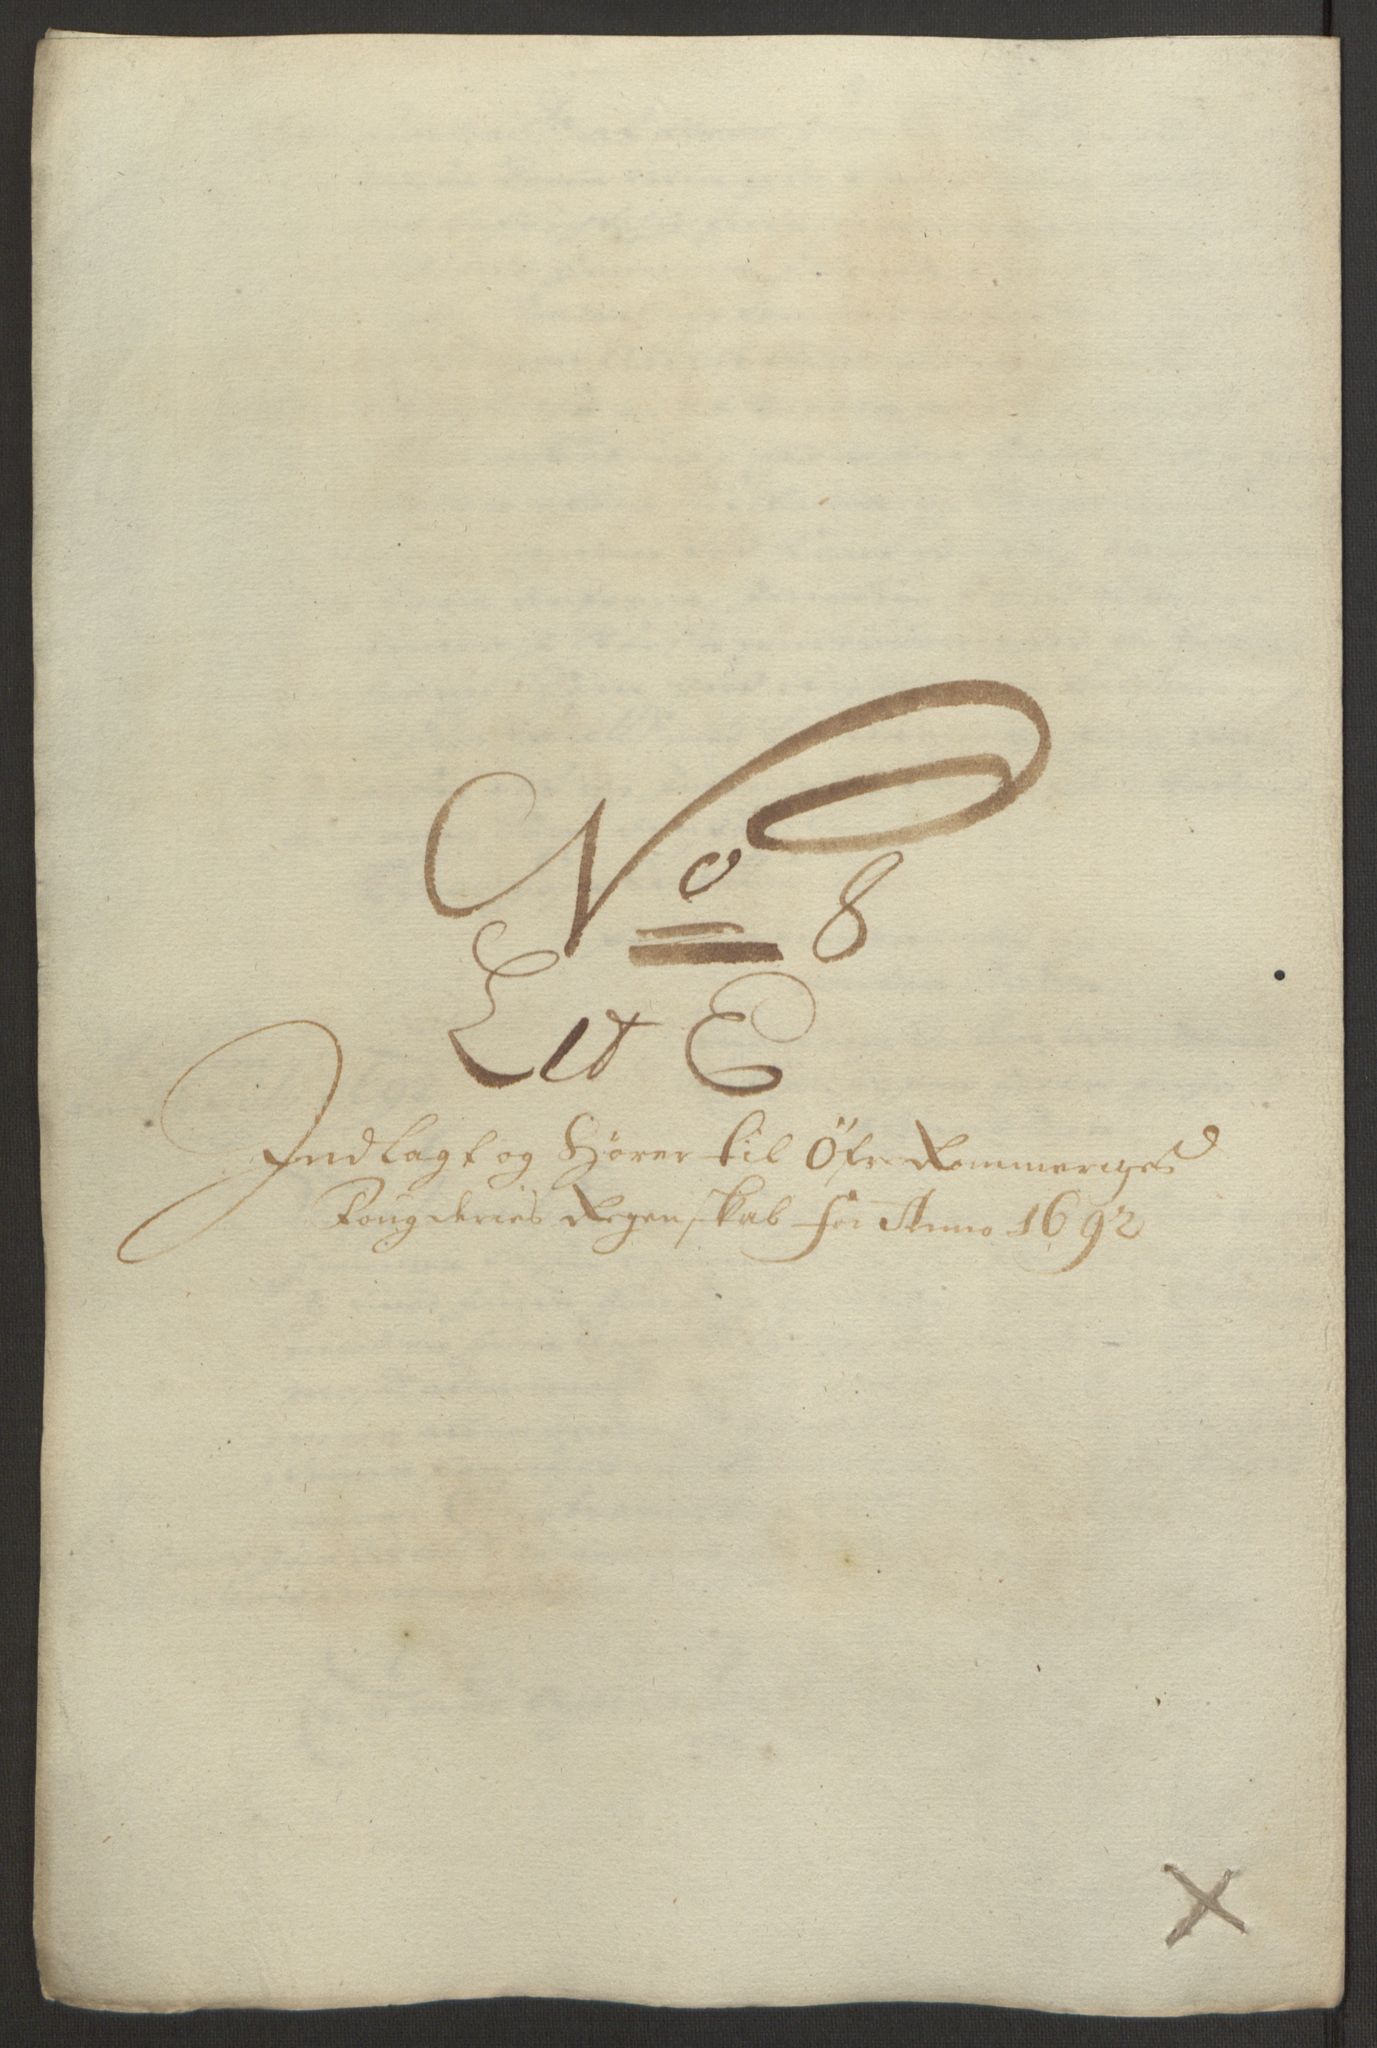 No 8
Lit E
Indlagt og hører til Öfre Rommeriges
Fougderies Regenskab for Anno 1692